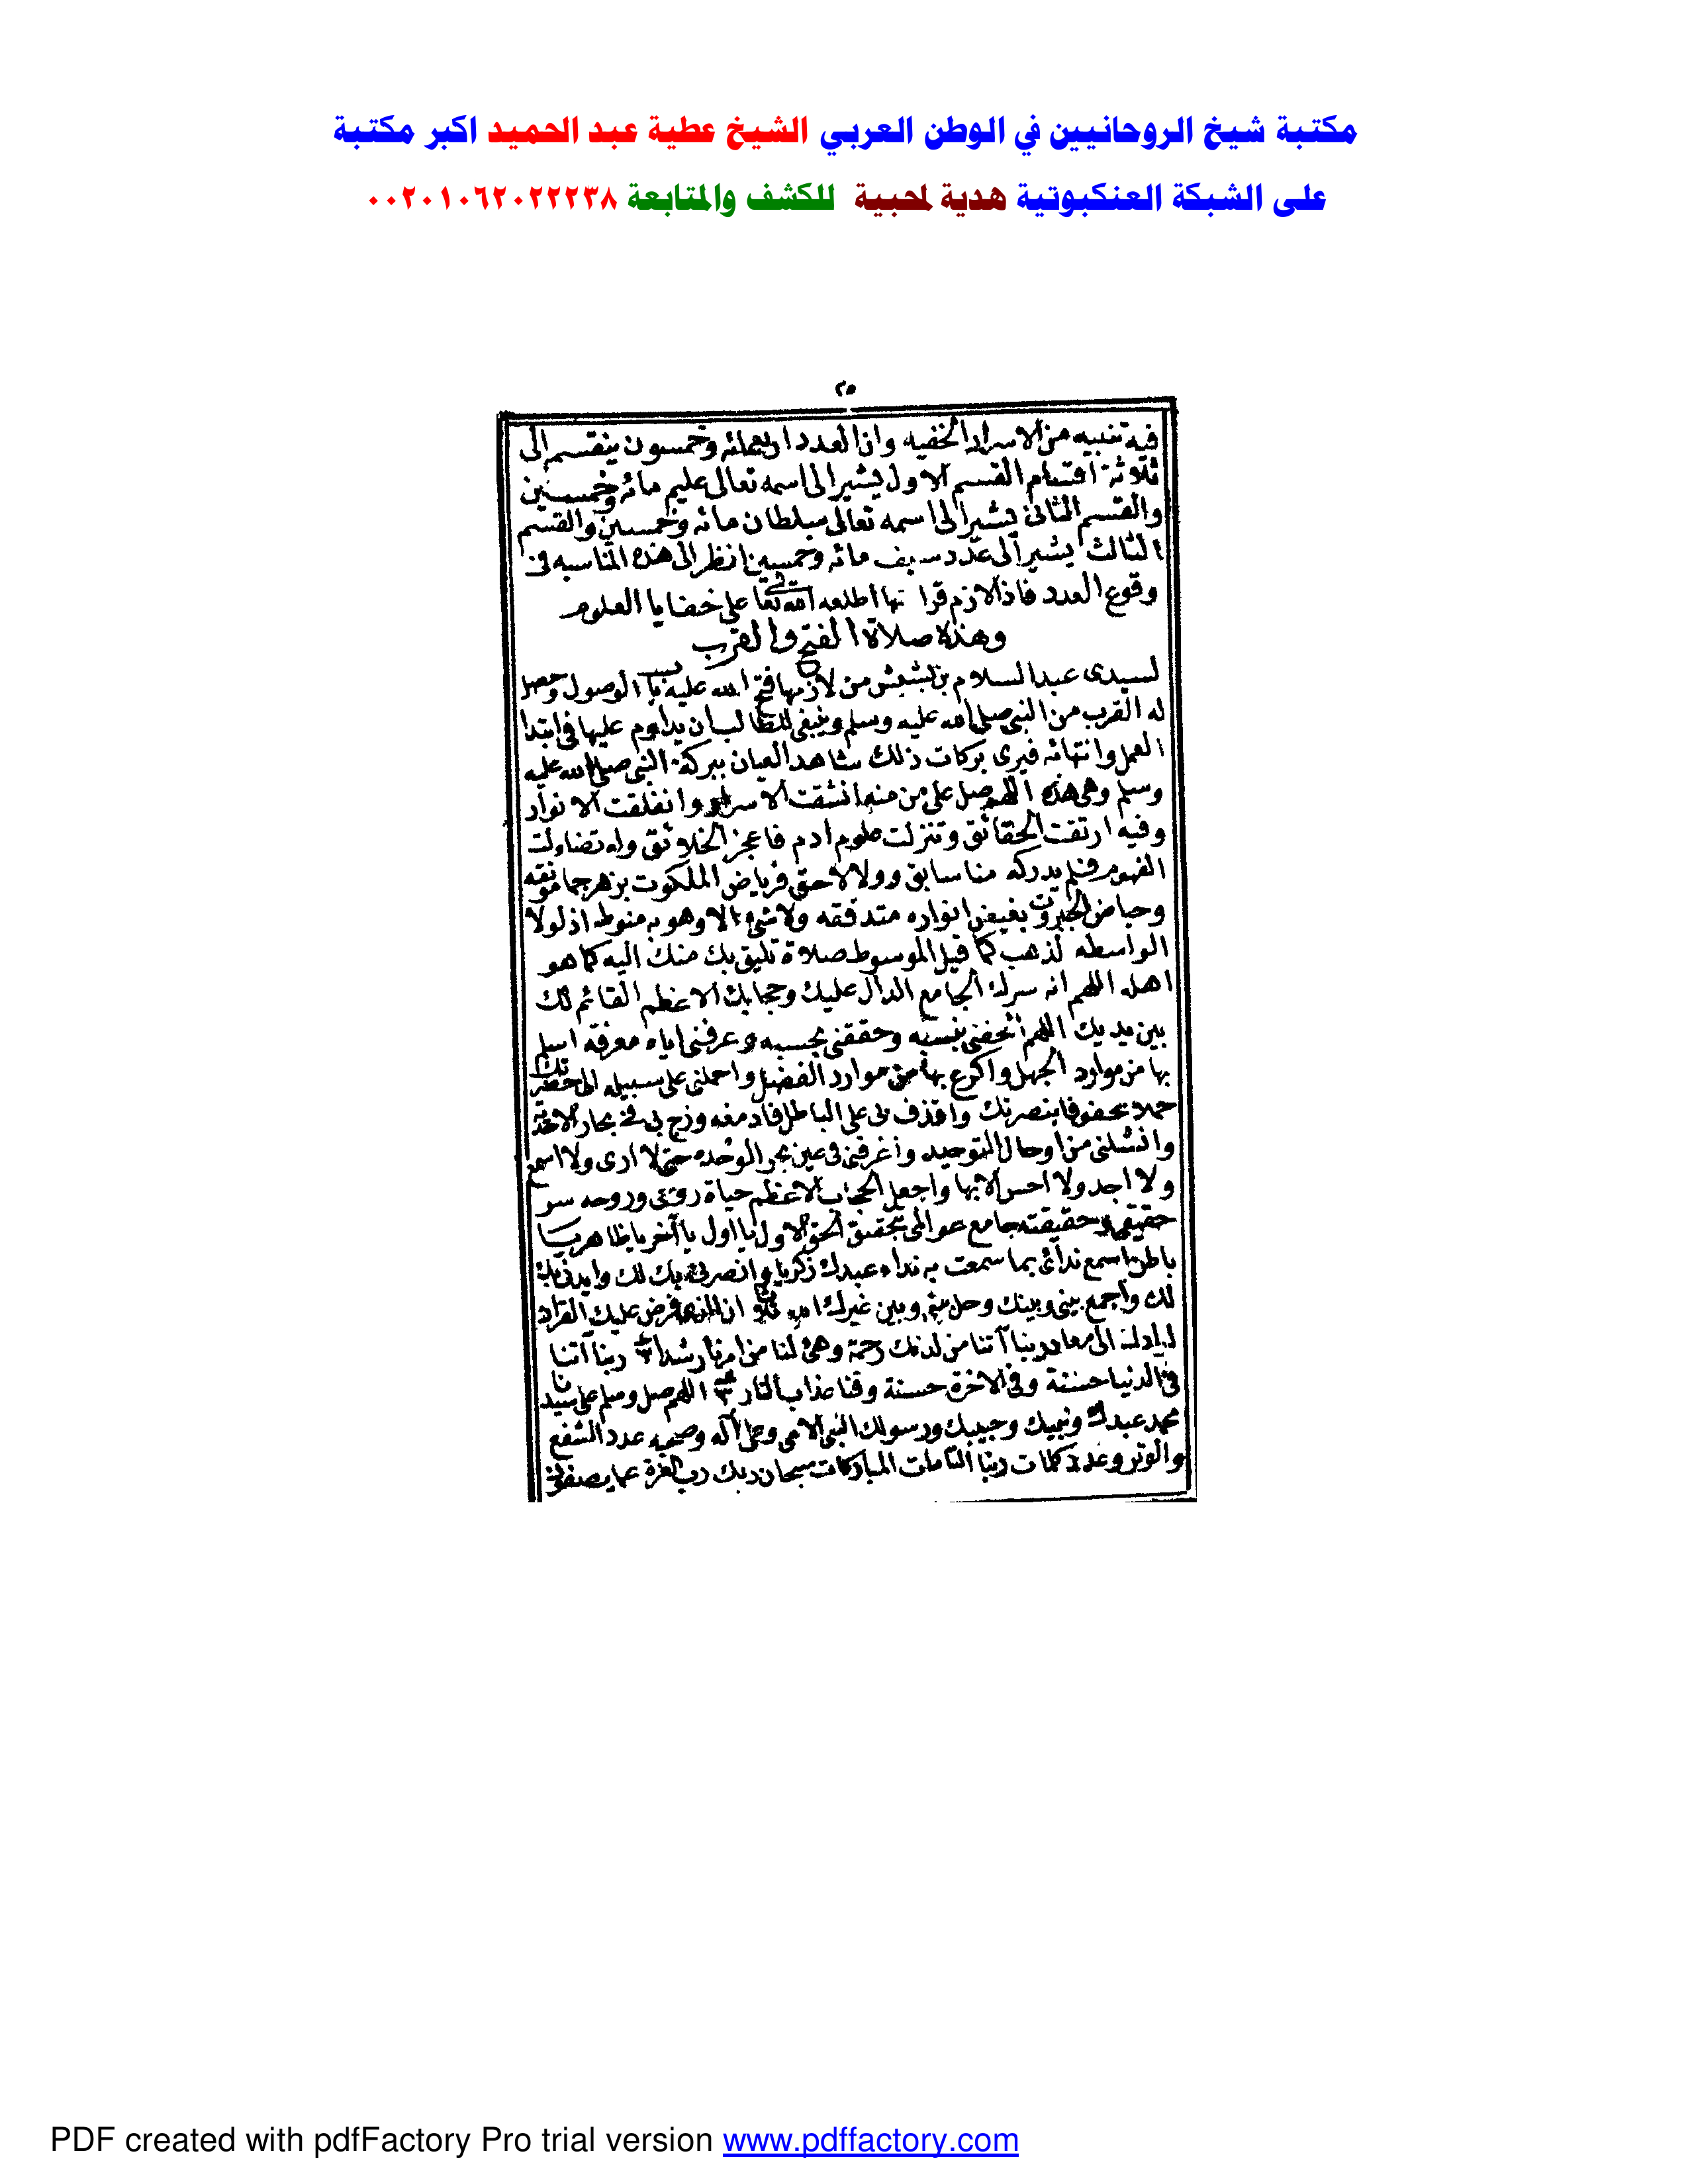 مكتبة شيخ الروحانيين في الوطن العربي الشيخ عطية عبد الحميد اكبر مكتبة
على الشبكة العنكبوتية هدية لمحبية للكشف والمتابعة ٠٠٢٠١٠٦٢٠٢٢٢٣٨
٢٥
فيه تنبيه من الاسرار الخفيه وان العدد اربعمائه وخمسون ينقسم الى
ثلاثة اقسام القسم الاول يشير الى اسمه تعالى عليم مائه وخمسين
والقسم الثانى يشير الى اسمه تعالى سلطان مائه وخمسين والقسم
الثالث يشير الى عدد سيف مائه وخمسين انظر الى هذه المناسبه فى
وقوع العدد فاذا لازم قرا تها اطلعه الله تعا لى على خفايا العلوم
وهذه صلاة الفتح والقرب
لسيدى عبد السلام بن بشيش من لازمها فتح الله عليه بسبب الوصول وحصل
له القرب من النبى صلى الله عليه وسلم وينبغى للطالب ان يداوم عليها فى ابتدا
العمل وانتهائه فيرى بركات ذلك شاهد العيان ببركة النبى صلى الله عليه
وسلم وهى هذه اللهم صل على من منه انشقت الاسرار وانفلقت الانوار
وفيه ارتقت الحقائق وتنزلت علوم ادم فاعجز الخلائق وله تضاءلت
الفهوم فلم يدركه منا سابق وولا لاحق فرياض الملكوت بزهر جماله مونقه
وحياض الجبروت بفيض انواره متدفقه ولا شئ الا وهو به منوط اذ لولا
الواسطه لذهب كما قيل الموسوط صلاة تليق بك منك اليه كما هو
اهله اللهم انه سرك الجامع الدال عليك وحجابك الاعظم القائم لك
بين يديك اللهم الحقنى بنسبه وحققنى بحسبه وعرفنى اياه معرفة اسلم
بها من موارد الجهل واكرع بها من موارد الفضل واحملنى على سبيله الى حضرتك
حملا محفوفا بنصرتك واقذف بى على الباطل فادمغه وزج بى فى بحار الاحديه
وانشلنى من اوحال التوحيد واغرقنى فى عين بحر الوحده حتى لا ارى ولا اسمع
ولا اجد ولا احس الا بها واجعل الحجاب الاعظم حياة روحى وروحه سر
حقيقتى وحقيقته جامع عوالمى بتحقيق الحق الاول يا اول يا آخر يا ظاهر يا
باطن اسمع ندائى بما سمعت به نداء عبدك زكريا وانصرنى بك لك وايدنى بك
لك واجمع بينى وبينك وحل بينى وبين غيرك الله ثلاثا ان الذى فرض عليك القران
لرادك الى معاد ربنا آتنا من لدنك رحمة وهئ لنا من امرنا رشدا ٣ ربنا آتنا
فى الدنيا حسنة وفى الاخرة حسنة وقنا عذاب النار ٣ اللهم صل وسلم على سيدنا
محمد عبدك ونبيك وحبيبك ورسولك النبى الامى وعلى آله وصحبه عدد الشفع
والوتر وعدد كلمات ربنا التامات المباركات سبحان ربك رب العزة عما يصفون
PDF created with pdfFactory Pro trial version www.pdffactory.com